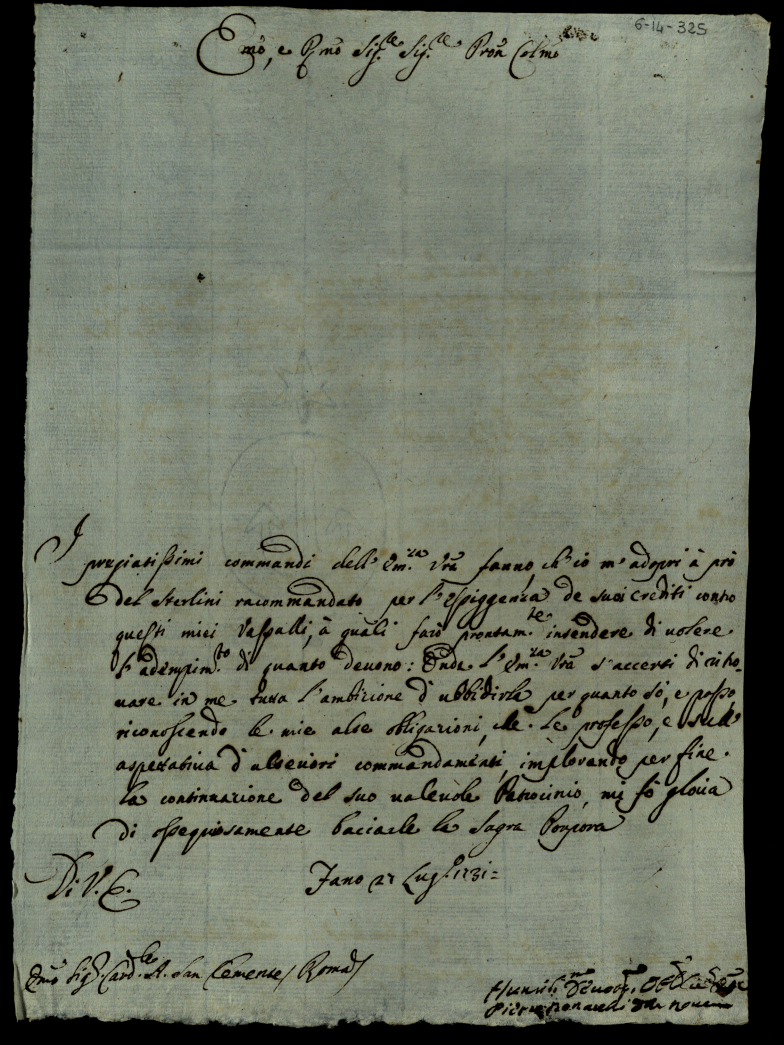 6-14-325
Emo, e Rmo Sig.re Sig.re Pron Colmo
I pregiatissimi commandi dell' Em.za Vra fanno, ch' io m' adopri à prò
del Sterlini racommandato per l' essiggenza de suoi crediti contro
questi miei Vassalli, à quali farò prontam.te intendere di volere
l' adempim.to di quanto devono: Onde l' Em.za Vra s' accerti di ritro-
vare in me tutta l' ambizione d' ubbidirla per quanto sò, e posso,
riconoscendo le mie alte obligazioni, che Le professo, e sull'
aspettativa d' ulteriori commandamenti, implorando per fine
la continuazione del suo valevole Patrocinio, mi fò gloria
di ossequiosamente baciarle la Sagra Porpora
Di V. E.
Fano 27 Lug.o 1731=
Emo Sig.r Card.le A. San Clemente / Roma /
Humiliss.mo Devot.mo
Pietro